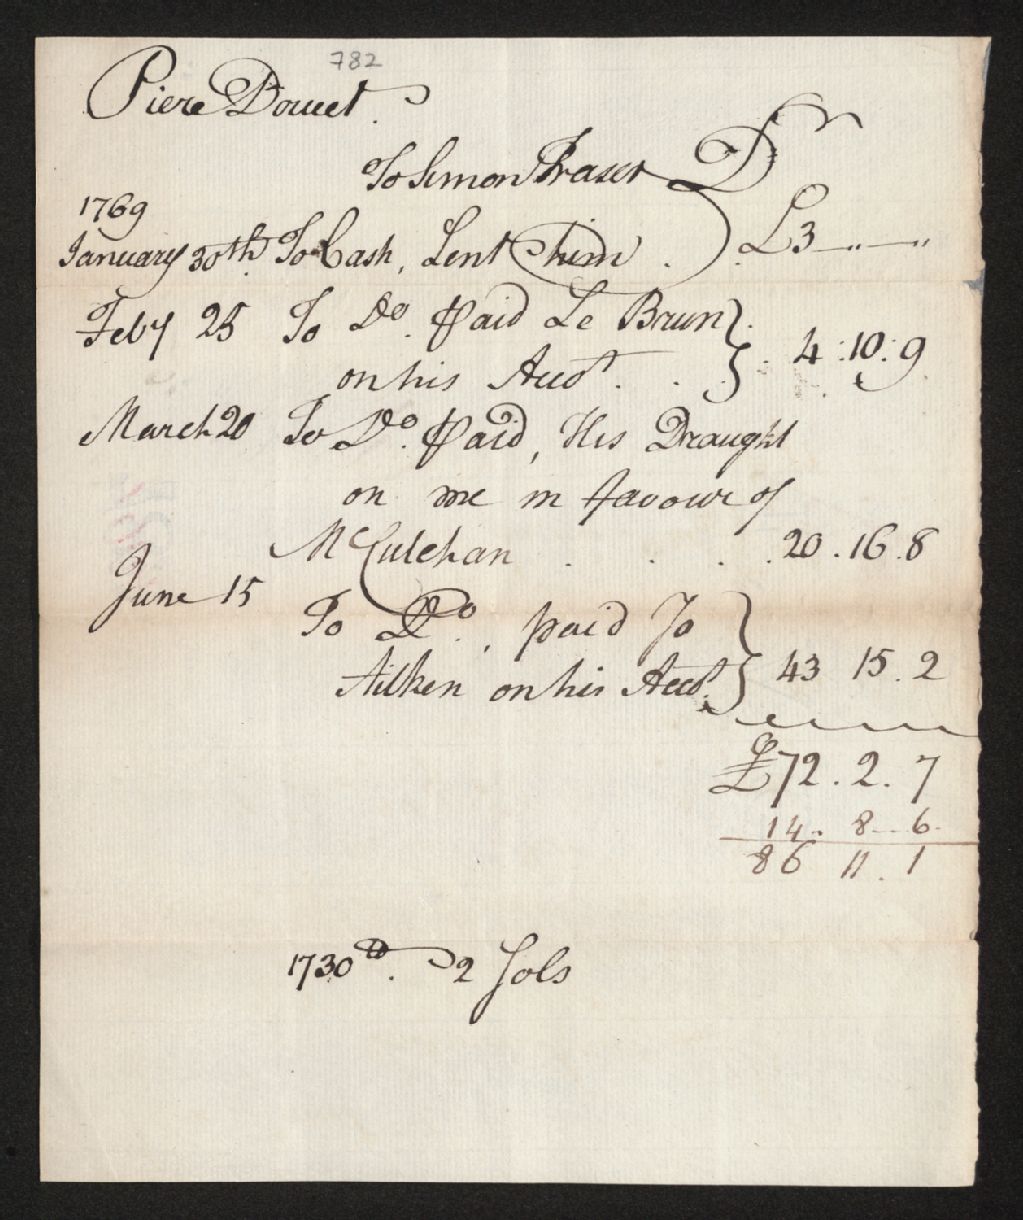 782
Piere Doucet
To Simon Fraser Dr
1769
January 30th To Cash, Lent him . . £3 „ — „
Feby 25 To Do. paid Le Brun
on his Acct. . . . 4 : 10 : 9
March 20 To Do. paid, His Draught
on me in favour of
McCulchan . . . . 20 . 16 . 8
June 15
To Do, paid To
Aitken on his Acct. 43 15 . 2
£72 . 2 . 7
14 .. 8 -- 6
86 11 . 1
1730 tt. 2 Sols